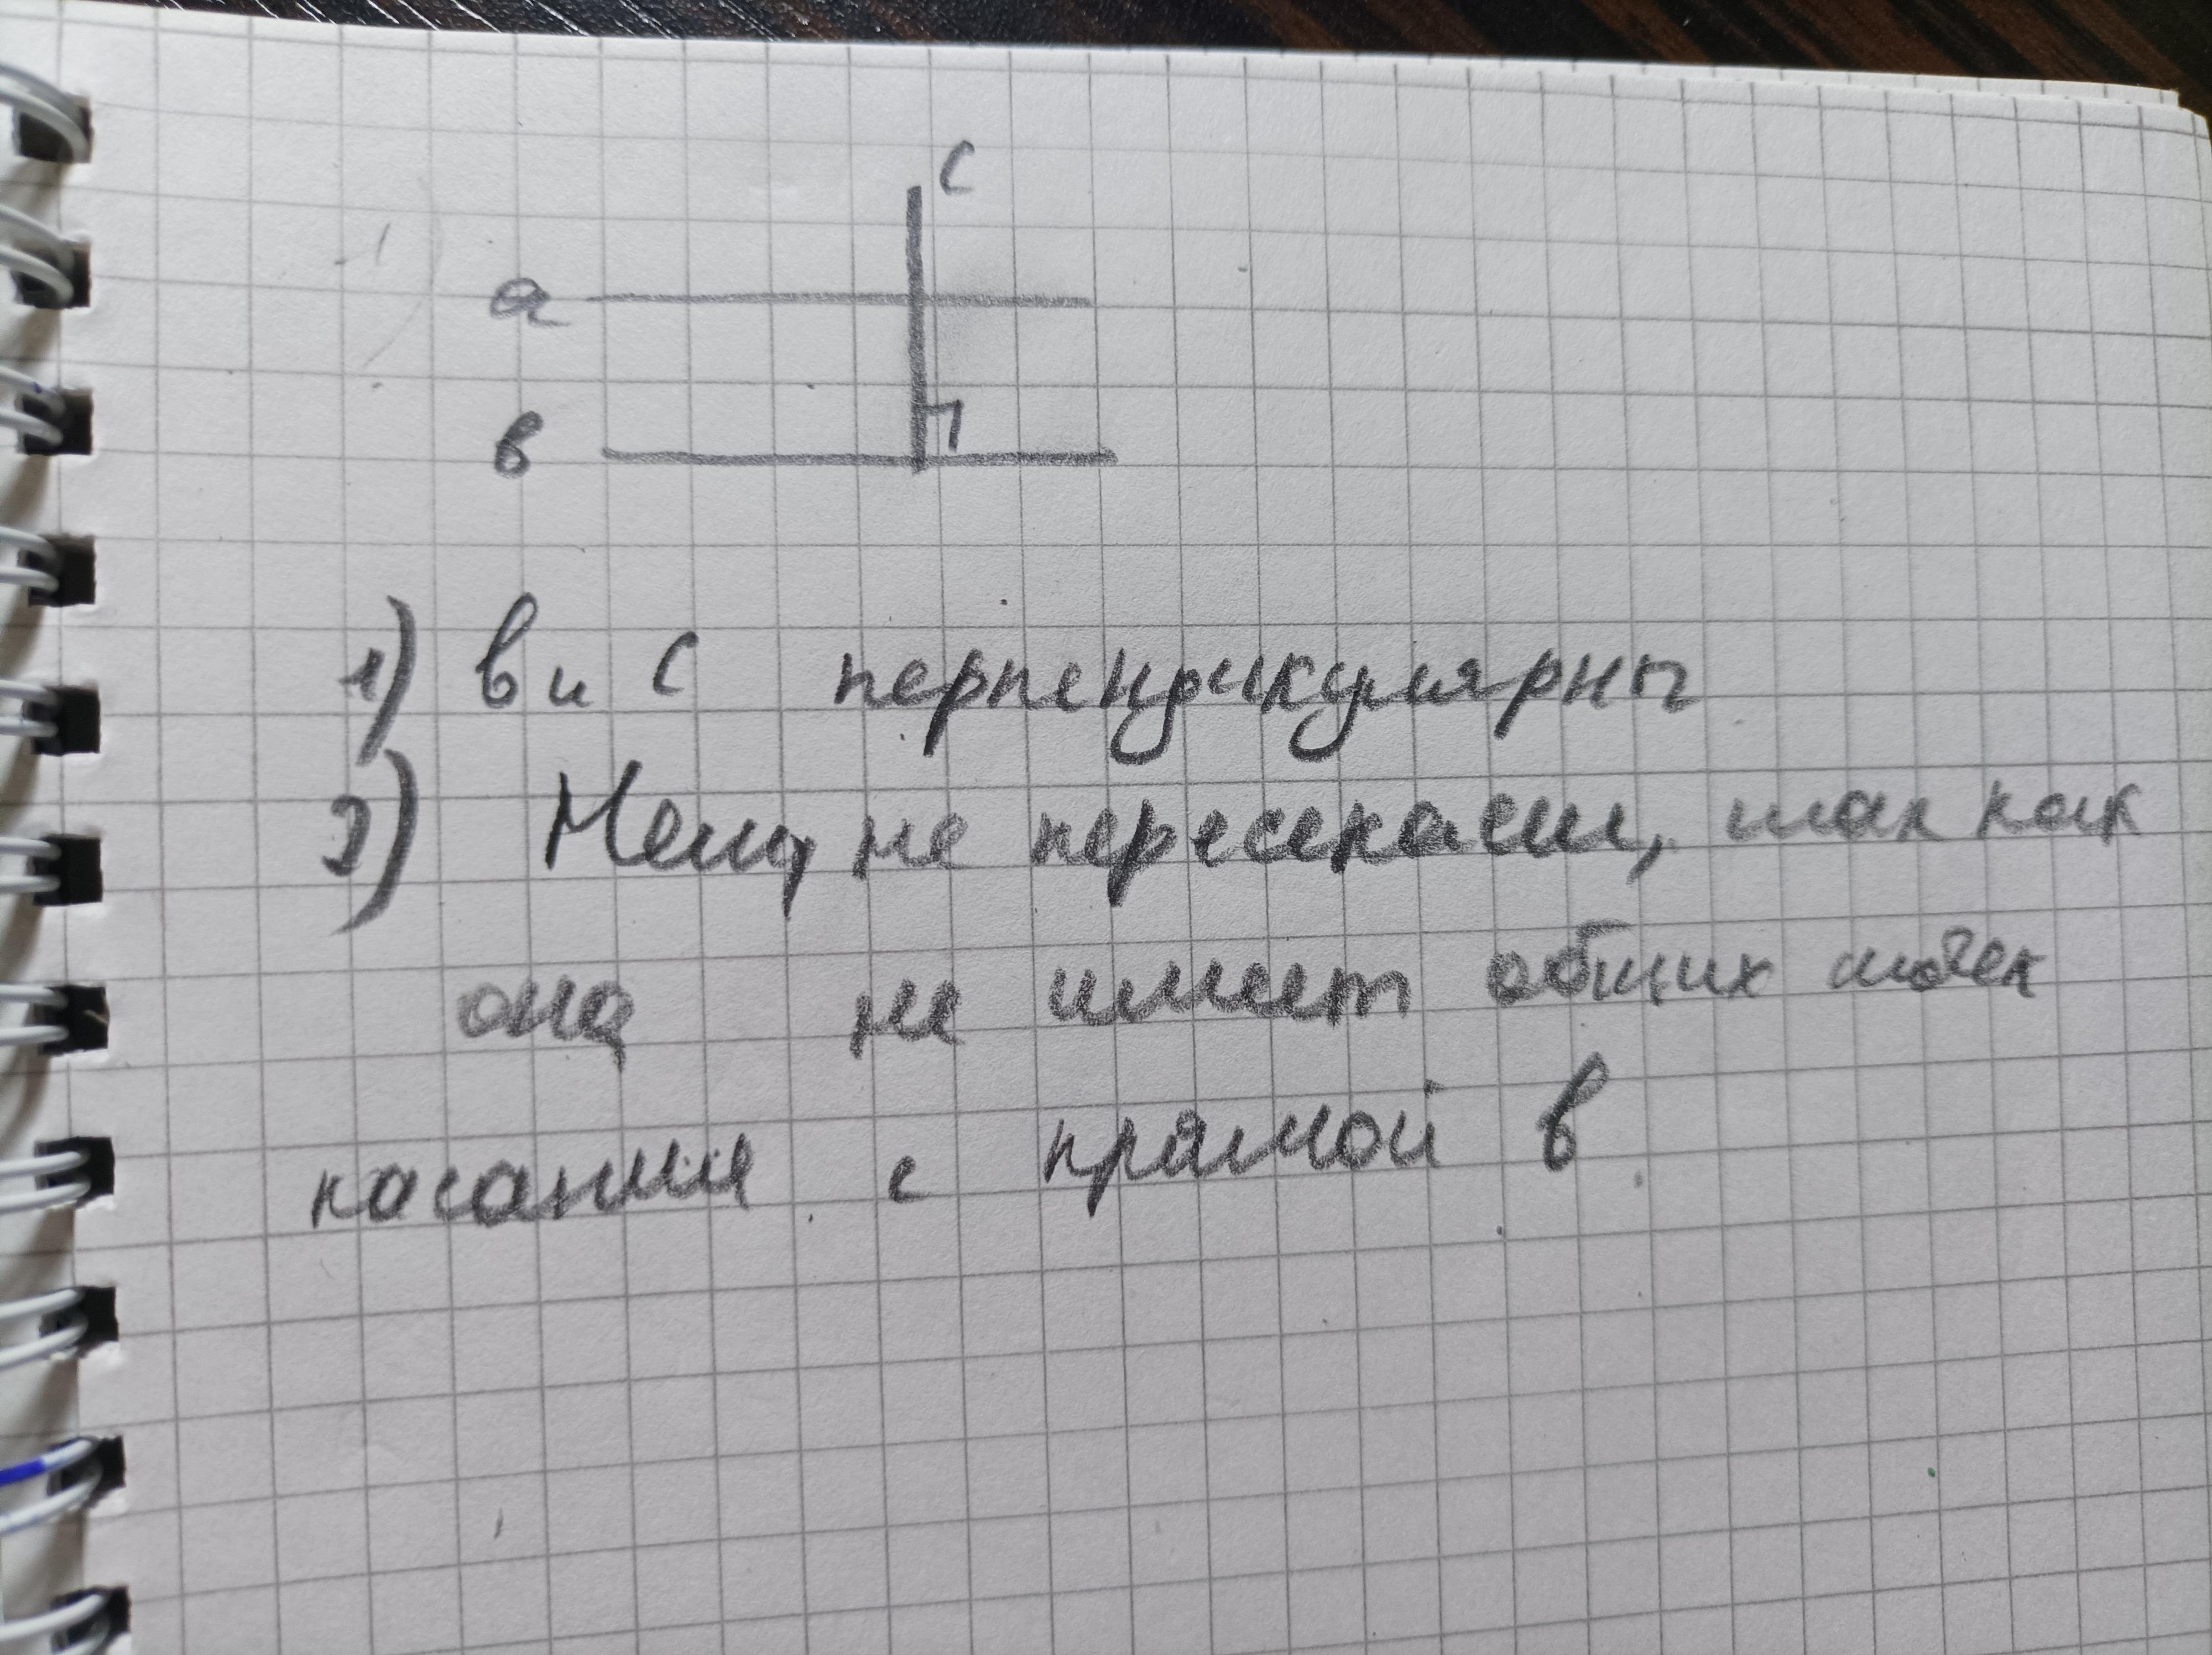 с
а
в
1) в и с перпендикулярны
2) Нет, не пересекает, так как
она не имеет общих точек
касания с прямой в